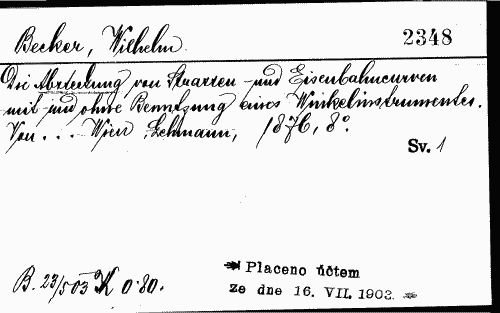 Becker, Wilhelm.
2348
Die Absteckung von Strassen- und Eisenbahncurven
mit und ohne Benutzung eines Winkelinstrumentes.
Von ... Wien, Lehmann, 1876, 8°.
Sv. 1
B. 23/503 K 0·80.
Placeno účtem
ze dne 16. VII. 1903.